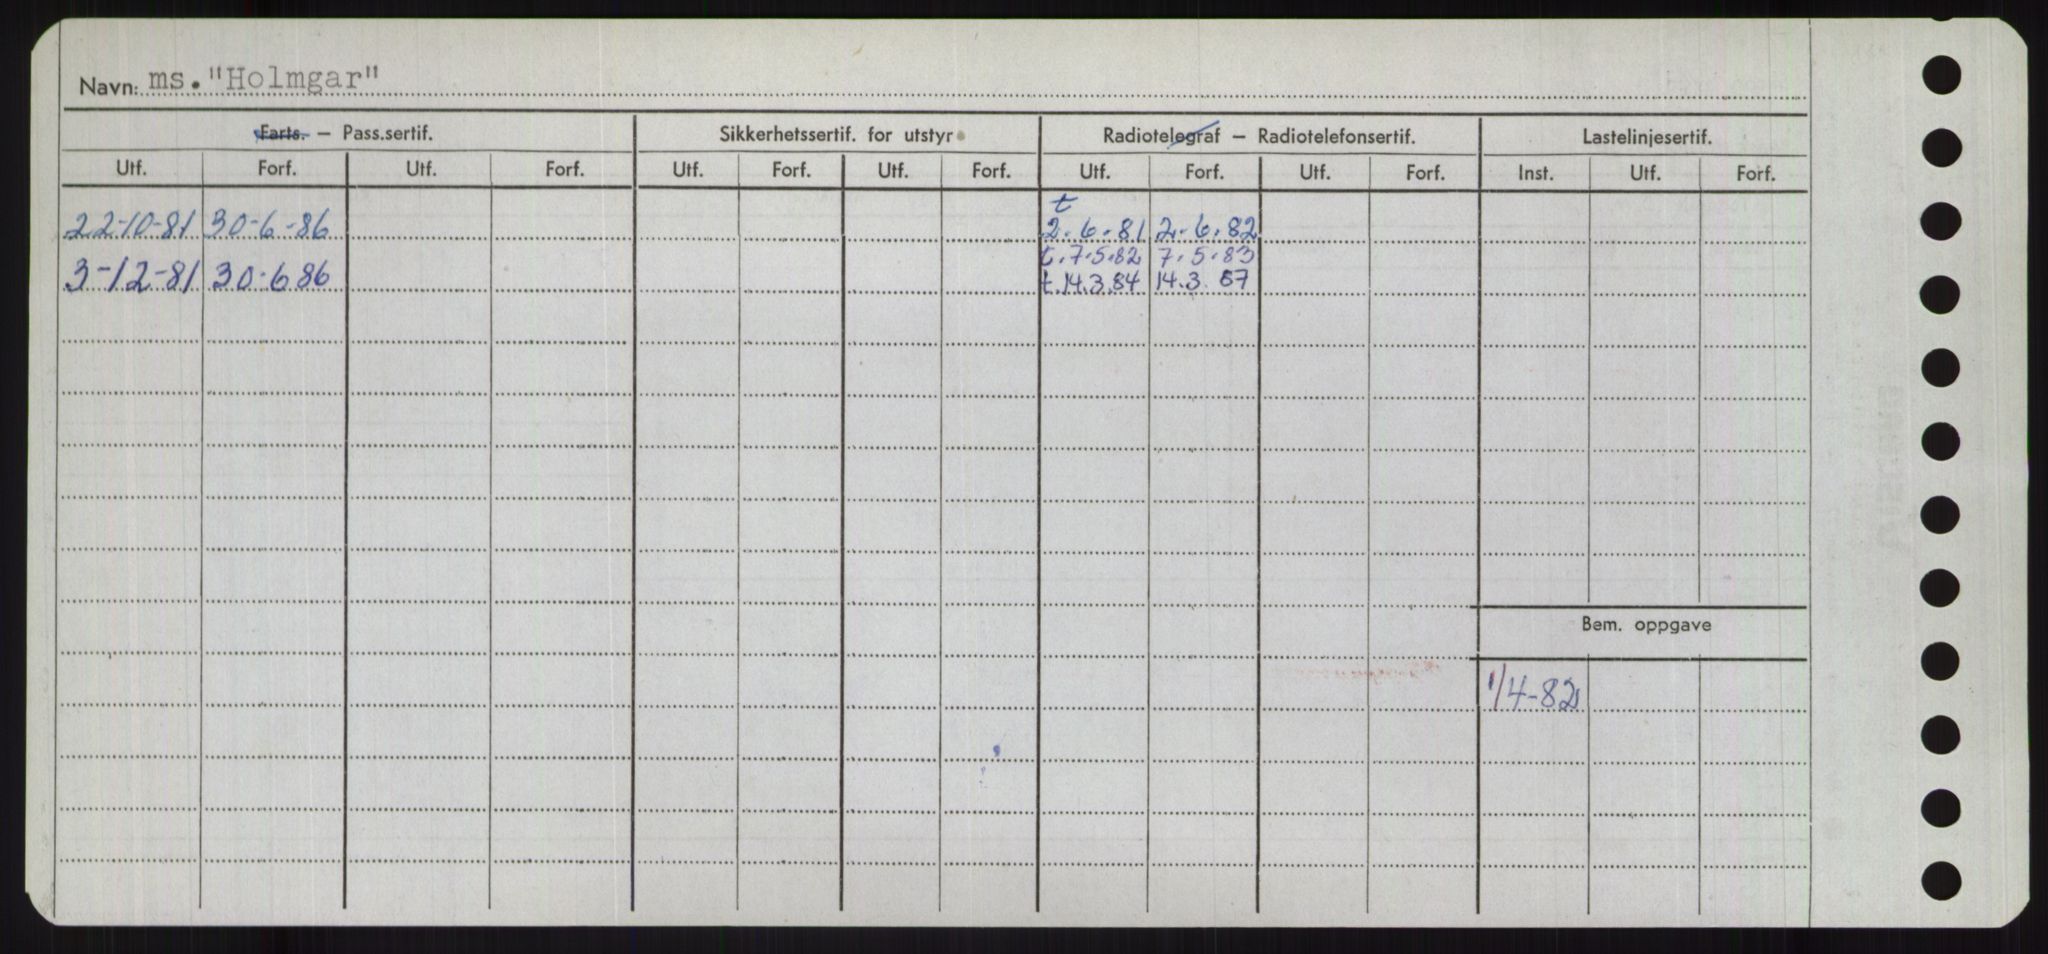 Navn: ms. "Holmgar"
Farts. – Pass.sertif. Sikkerhetssertif. for utstyr Radiotelegraf – Radiotelefonsertif. Lastelinjesertif.
Utf. Forf. Utf. Forf. Utf. Forf. Utf. Forf. Utf. Forf. Utf. Forf. Inst. Utf. Forf.
t
22-10-81 30-6-86 2.6.81 2.6.82
t.7.5.82 7.5.83
3-12-81 30-6 86 t.14.3.84 14.3.87
Bem. oppgave
1/4-82